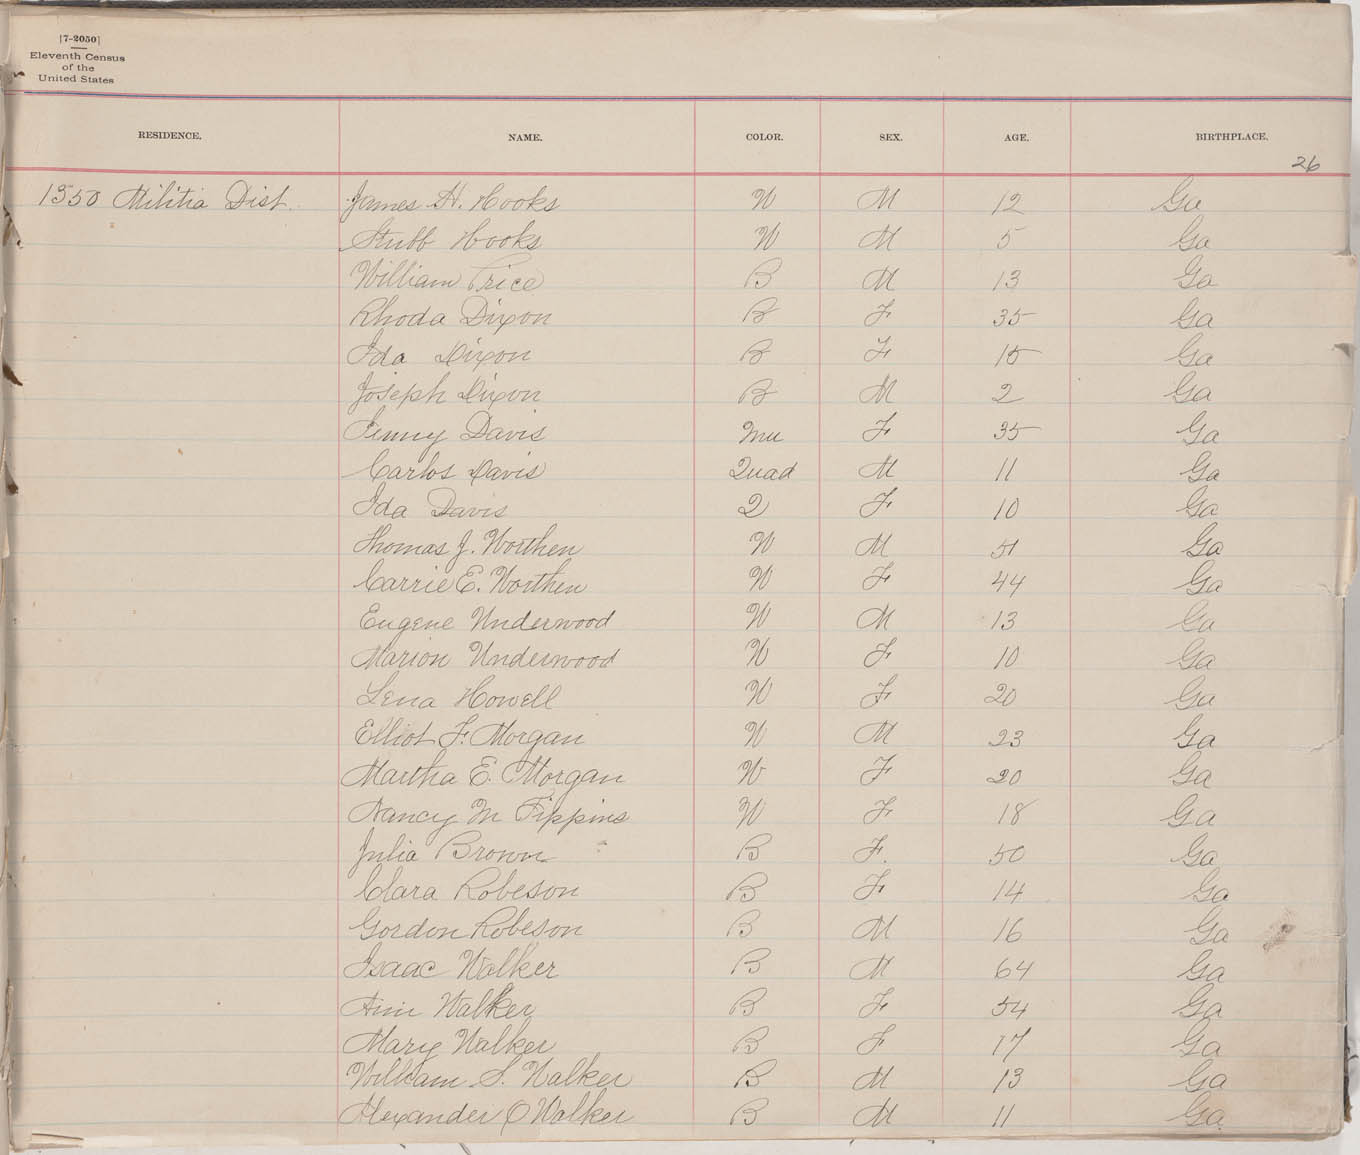 [7-2050]
Eleventh Census
of the
United States
RESIDENCE. NAME. COLOR. SEX. AGE. BIRTHPLACE.
26
1350 Militia Dist. James H. Hooks W M 12 Ga
Stubb Hooks W M 5 Ga
William Price B M 13 Ga
Rhoda Dixon B F 35 Ga
Ida Dixon B F 15 Ga
Joseph Dixon B M 2 Ga
Jenny Davis Mu F 35 Ga
Carlos Davis Quad M 11 Ga
Ida Davis Q F 10 Ga
Thomas J. Worthen W M 51 Ga
Carrie E. Worthen W F 44 Ga
Eugene Underwood W M 13 Ga
Marion Underwood W F 10 Ga
Lena Howell W F 20 Ga
Elliot F. Morgan W M 23 Ga
Martha E. Morgan W F 20 Ga
Nancy M Tippins W F 18 Ga
Julia Brown B F. 50 Ga
Clara Robeson B F 14 Ga
Gordon Robeson B M 16 Ga
Isaac Walker B M 64 Ga
Ann Walker B F 54 Ga
Mary Walker B F 17 Ga
William S. Walker B M 13 Ga
Alexander O Walker B M 11 Ga